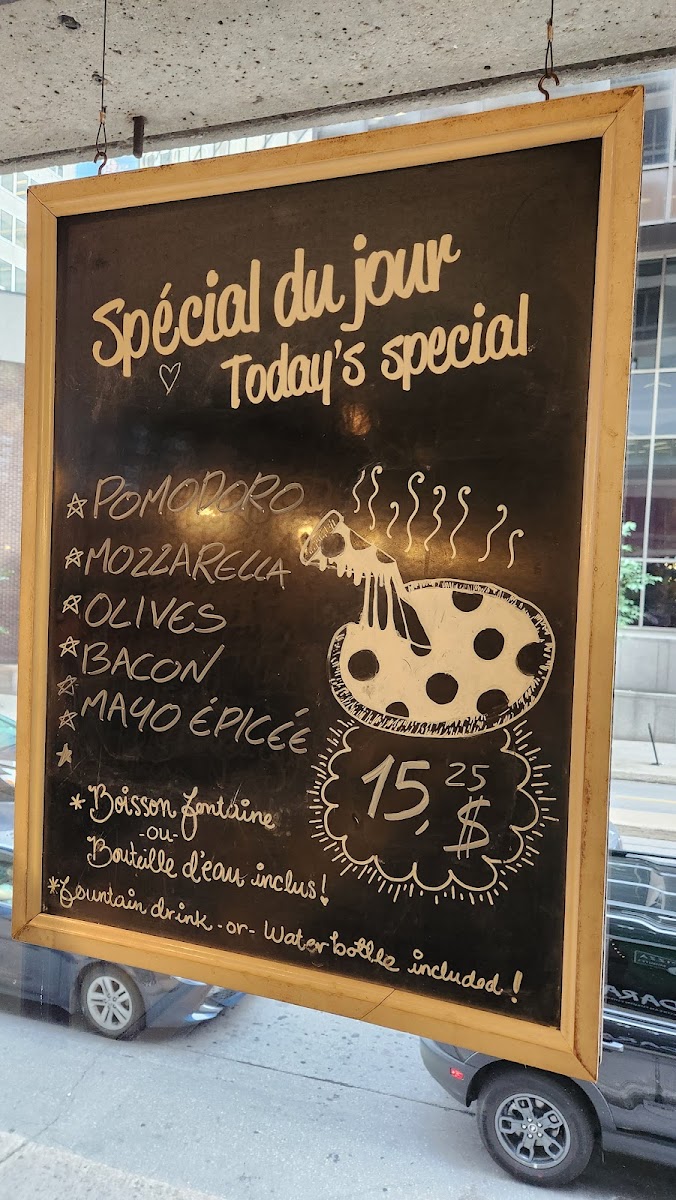 Spécial du jour
Today's special
POMODORO
MOZZARELLA
OLIVES
BACON
MAYO ÉPICÉE
15,25 $
*Boisson fontaine
-ou-
Bouteille d'eau inclus!
*fountain drink -or- Water bottle included!